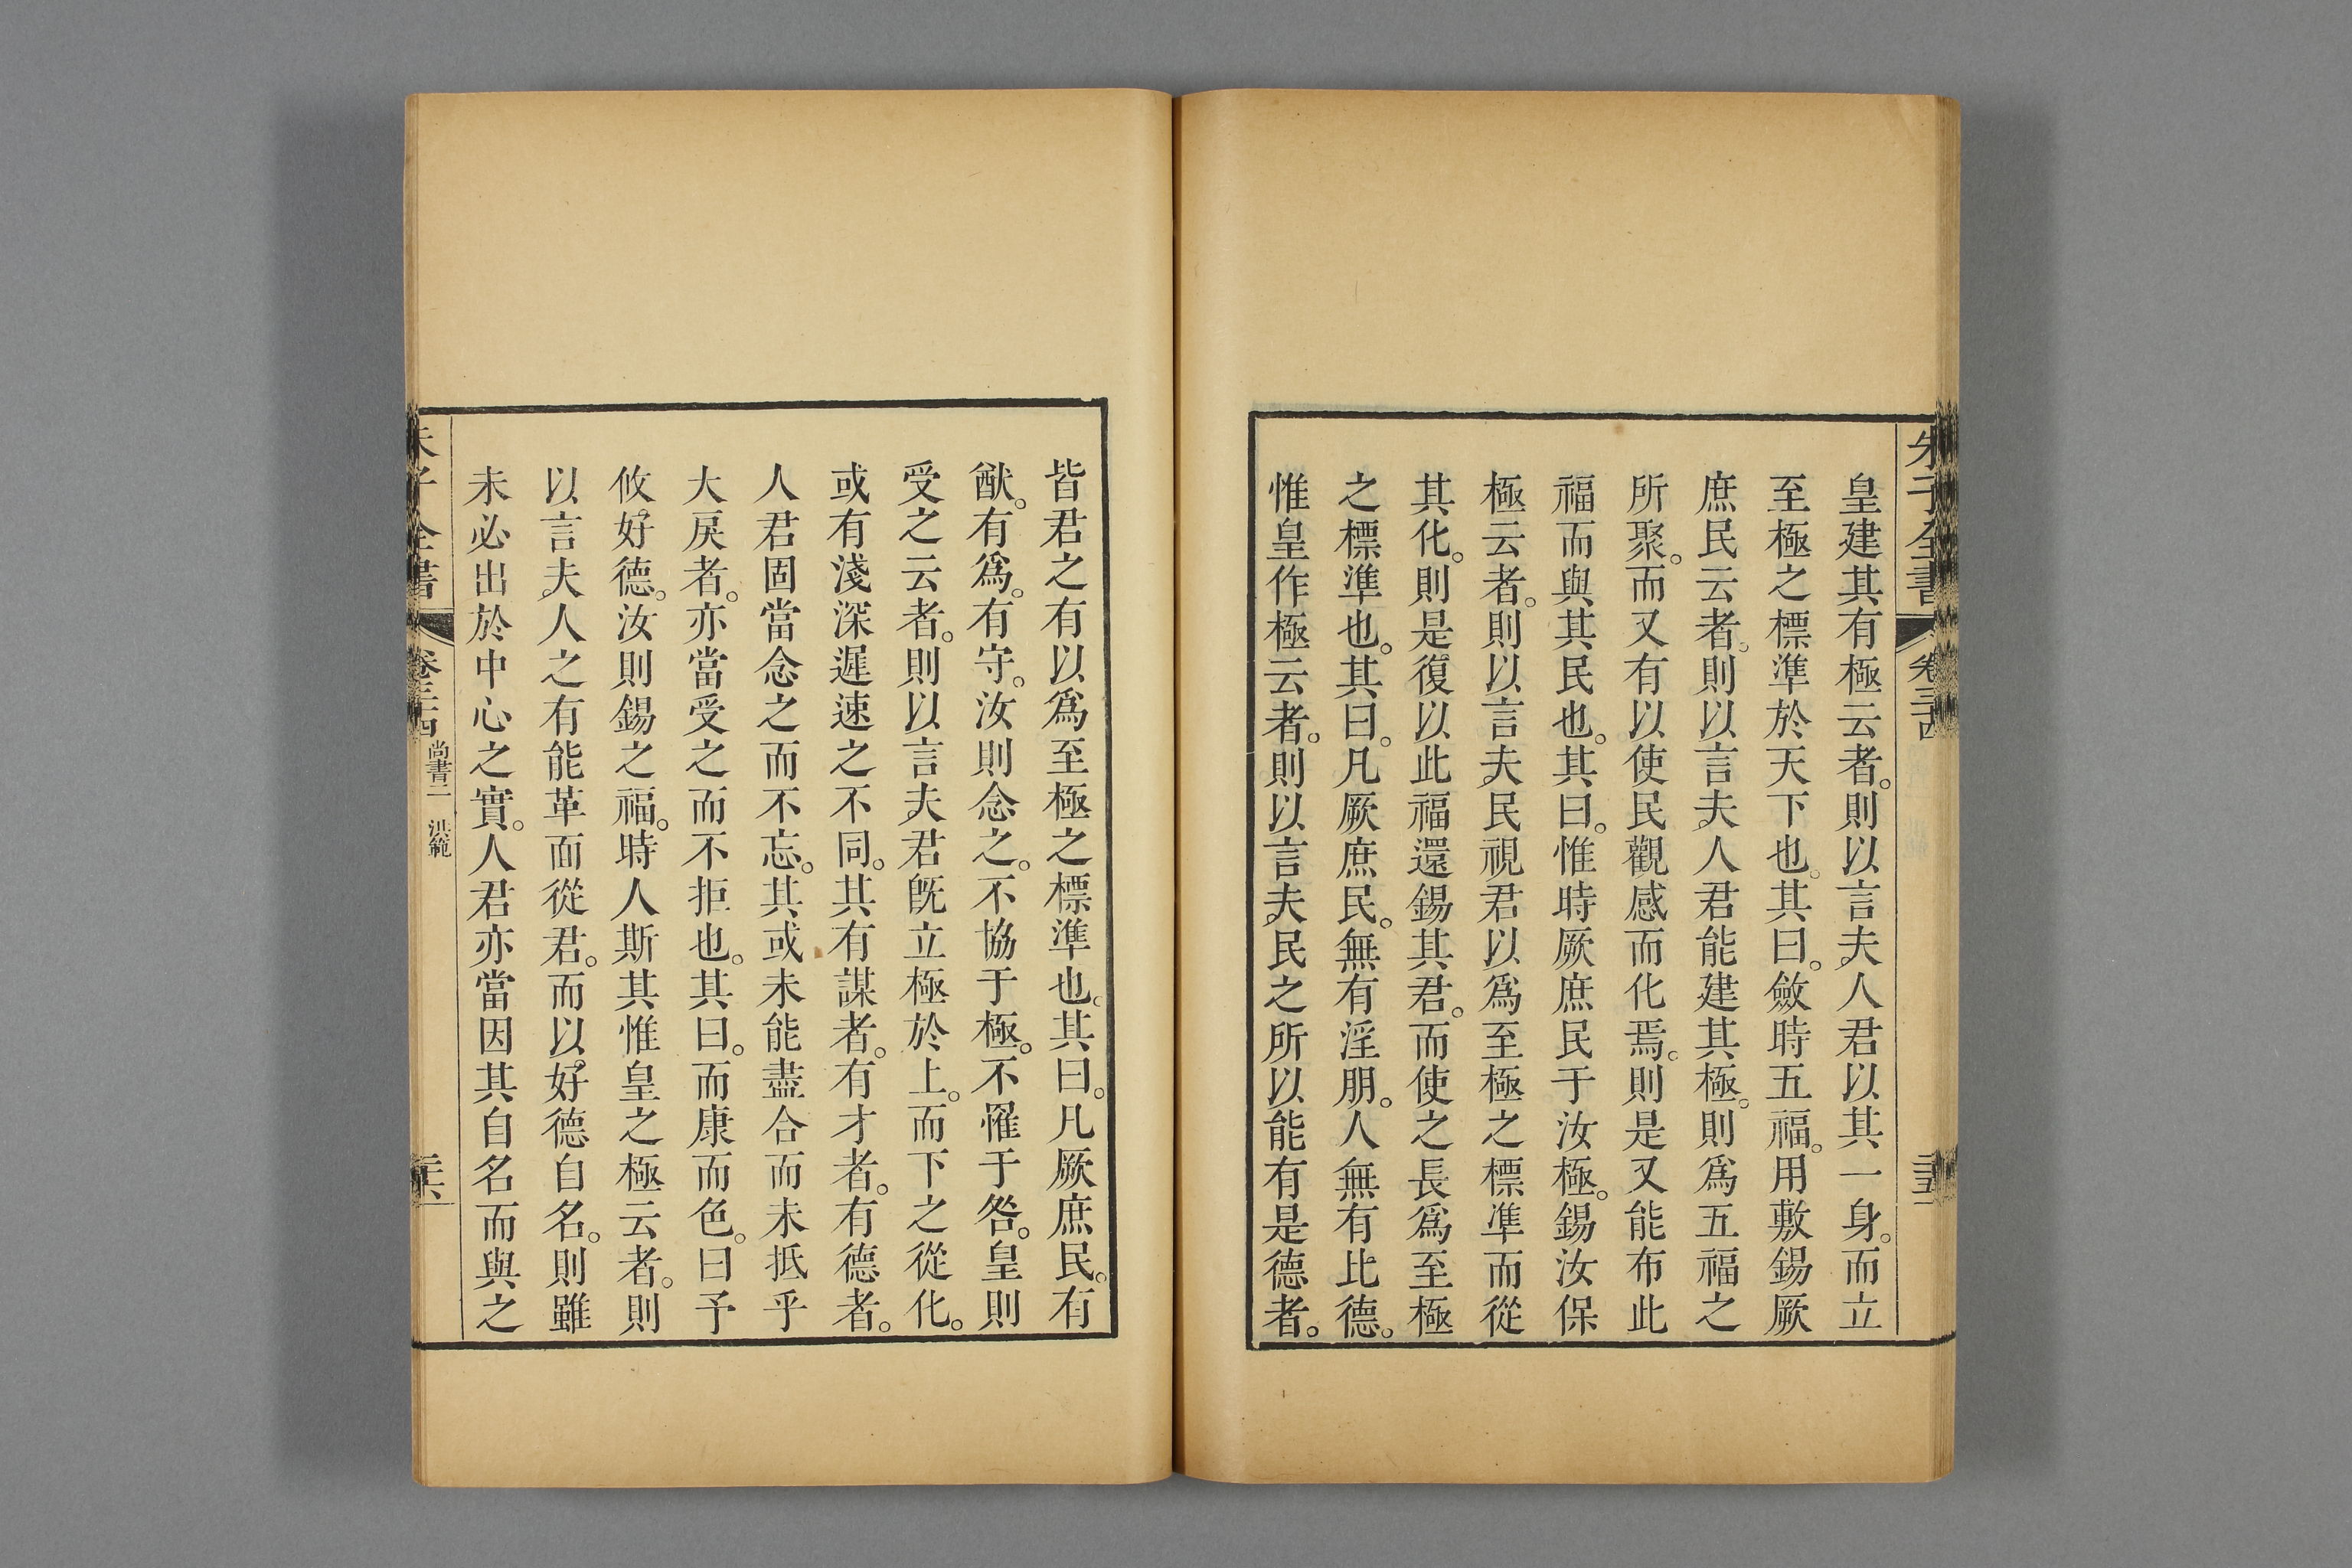 朱子全書 卷三十四 三十五
皇建其有極云者。則以言夫人君以其一身。而立
至極之標準於天下也。其曰。斂時五福。用敷錫厥
庶民云者。則以言夫人君能建其極。則爲五福之
所聚。而又有以使民觀感而化焉。則是又能布此
福而與其民也。其曰。惟時厥庶民于汝極。錫汝保
極云者。則以言夫民視君以爲至極之標準而從
其化。則是復以此福還錫其君。而使之長爲至極
之標準也。其曰。凡厥庶民。無有淫朋。人無有比德。
惟皇作極云者。則以言夫民之所以能有是德者。
皆君之有以爲至極之標準也。其曰。凡厥庶民。有
猷。有爲。有守。汝則念之。不協于極。不罹于咎。皇則
受之云者。則以言夫君旣立極於上。而下之從化。
或有淺深遲速之不同。其有謀者。有才者。有德者。
人君固當念之而不忘。其或未能盡合而未抵乎
大戾者。亦當受之而不拒也。其曰。而康而色。曰予
攸好德。汝則錫之福。時人斯其惟皇之極云者。則
以言夫人之有能革面從君。而以好德自名。則雖
未必出於中心之實。人君亦當因其自名而與之
朱子全書 卷三十四 尚書二 洪範 三十六